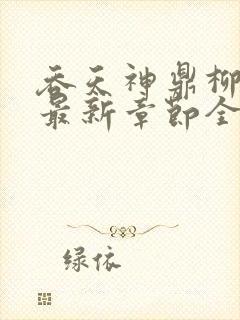 吞天神鼎柳
最新章节全
绿依